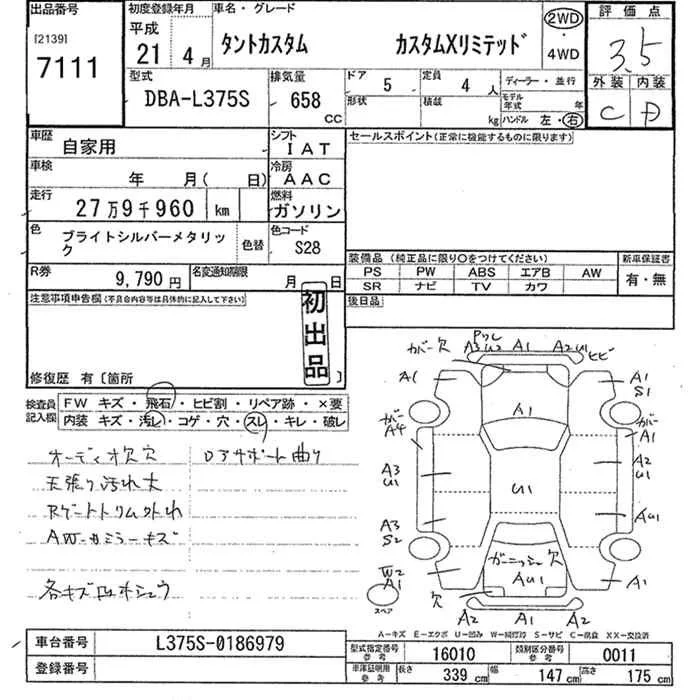 出品番号
[2139]
7111
初度登録年月
平成
21 4月
車名・グレード
タントカスタム カスタムXリミテッド
2WD
・
4WD
評価点
3.5
外装 内装
C D
型式
DBA-L375S
排気量
658
CC
ドア 5
定員 4人
ディーラー・並行
形状
積載 kg
モデル年式 年
ハンドル 左・右
車歴 自家用
シフト IAT
車検 年 月( 日)
冷房 AAC
走行 27万9千960 km
燃料 ガソリン
色 ブライトシルバーメタリック
色替
色コード S28
R券 9,790円
名変通知期限 月 日
セールスポイント(正常に機能するものに限ります)
装備品 (純正品に限り○をつけてください)
新車保証書
PS PW ABS エアB AW
SR ナビ TV カワ
有・無
後日品
注意事項申告欄(不具合内容等は具体的に記入して下さい)
初出品
修復歴 有〔箇所 〕
検査員記入欄
FW キズ・飛石・ヒビ割・リペア跡・×要
内装 キズ・汚レ・コゲ・穴・スレ・キレ・破レ
オーディオ欠穴
ロアサポート曲り
天張り汚れ大
Rゲートトリム外れ
AW・カミラーキズ
カバー欠
A1
A2 U1
ヒビ
A1
A1
S1
A1
カバー
A4
カバー
A1
A3
U1
A2
U1
U1
A3
S2
AU1
ガーニッシュ欠
AU1
W2
A1
欠
A1
スペア
A2
A2
A-キズ E-エクボ U-凹み W-補修跡 S-サビ C-腐食 XX-交換済
車台番号 L375S-0186979
登録番号
型式指定番号 参考 16010
類別区分番号 参考 0011
車庫証明用 参考 長さ 339cm 幅 147cm 高さ 175cm